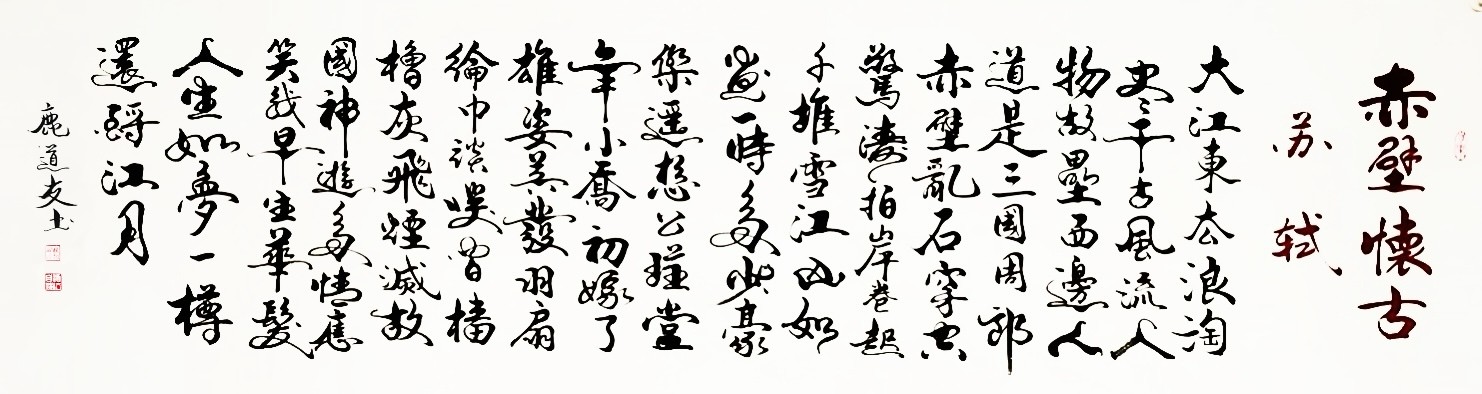 赤壁懷古
苏轼
大江東去浪淘
尽千古風流人
物故壘西邊人
道是三國周郎
赤壁亂石穿空
驚濤拍岸卷起
千堆雪江山如
畫一時多少豪
傑遥想公瑾當
年小喬初嫁了
雄姿英發羽扇
綸巾談笑間檣
櫓灰飛煙滅故
國神遊多情應
笑我早生華髮
人生如夢一樽
還酹江月
鹿道友书